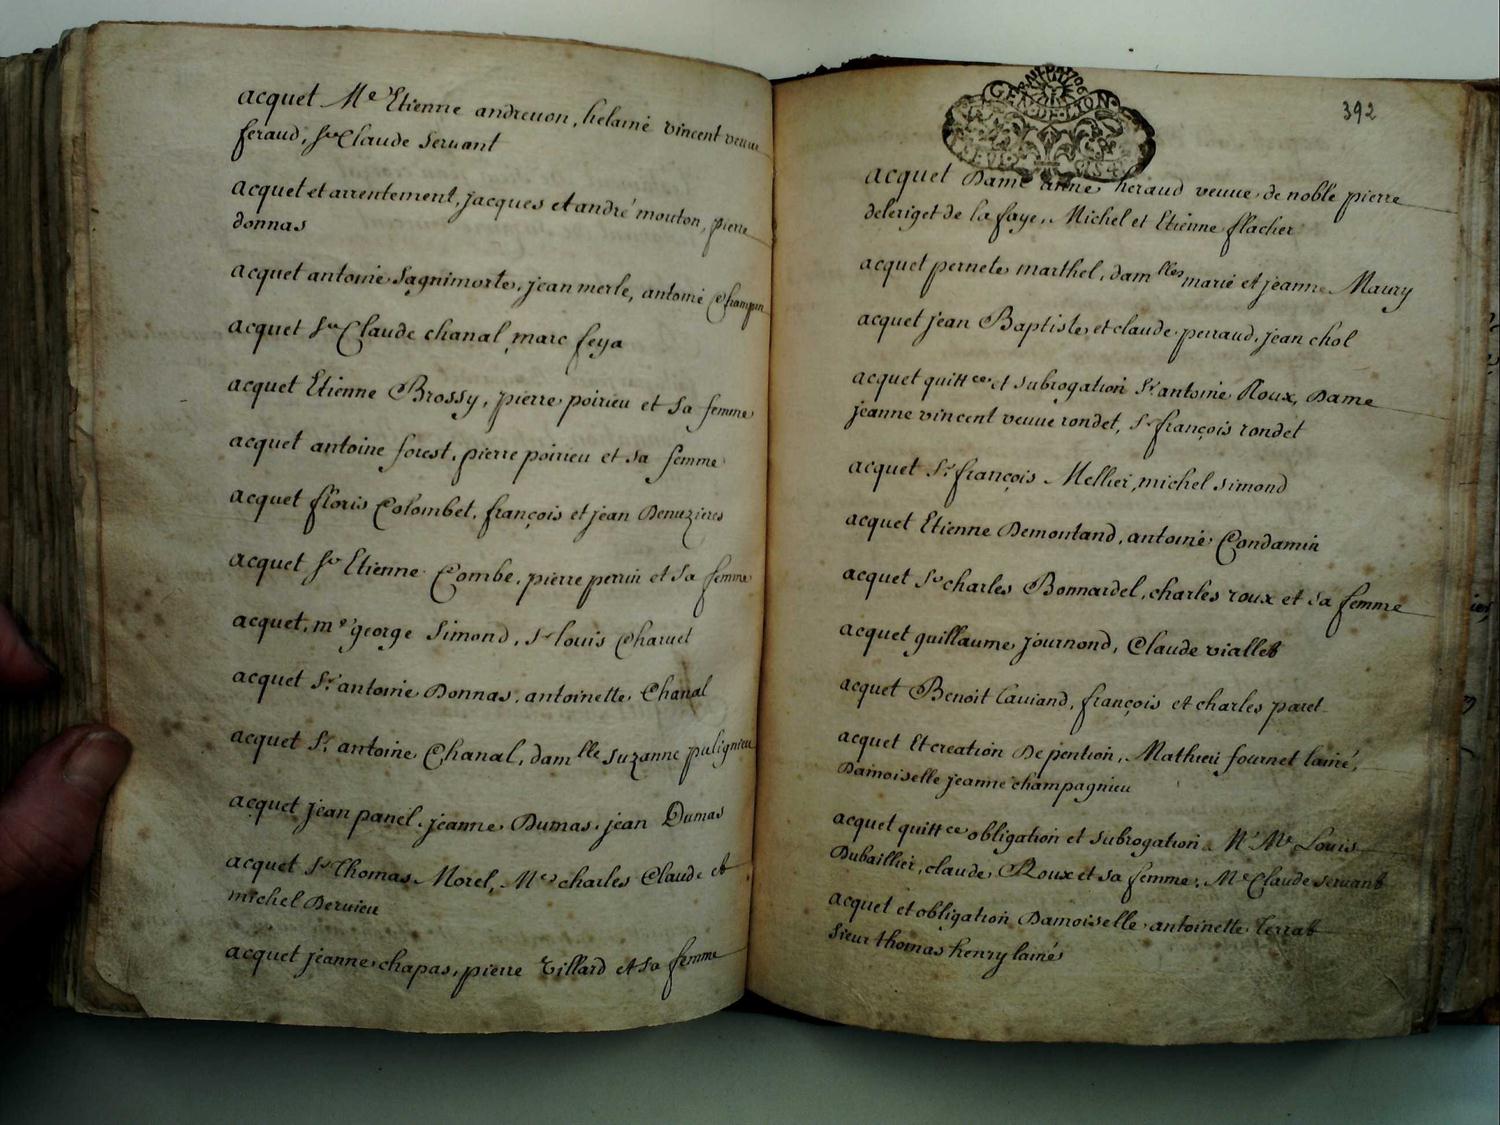 acquet Me Etienne andreuon, helaine vincent veuue
feraud, Sr Claude Seruant
acquet et arrentement, jacques et andré mouton, pierre
donnas
acquet antoine Sagnimorte, jean merle, antoine Champin
acquet Sr Claude chanal, marc feya
acquet Etienne Brossy, pierre poirieu et sa femme
acquet antoine forest, pierre poirieu et sa femme
acquet floris Colombet, françois et jean Denuzieres
acquet Sr Etienne Combe, pierre perrin et sa femme
acquet, me george Simond, Sr louis Charuet
acquet Sr antoine Donnas, antoinette Chanal
acquet Sr antoine Chanal, damlle suzanne pulignieu
acquet jean panel, jeanne Dumas, jean Dumas
acquet Sr Thomas Morel, Mes charles Claude et
michel Deruieu
acquet jeanne chapas, pierre Villard et sa femme
392
GEN DE LYON
acquet Dame anne heraud veuue de noble pierre
deleriget de la faye, Michel et Etienne flacher
acquet pernete marthel, damlles marie et jeanne Maury
acquet jean Baptiste et claude perraud, jean chol
acquet quittce et subrogation Sr antoine Roux, Dame
jeanne vincent veuue rondet, Sr françois rondet
acquet Sr françois Mellier, michel simond
acquet Etienne Demontand, antoine Condamin
acquet Sr charles Bonnardel, charles roux et sa femme
acquet guillaume journond, Claude viallet
acquet Benoit Cauiand, françois et charles paret
acquet Et creation De pention, Mathieu fournet lainé,
Damoiselle jeanne champagnieu
acquet quittce obligation et subrogation Mr Me Louis
Dubaillier, claude Roux et sa femme, Me Claude seruant
acquet et obligation Damoiselle antoinette Terrat
Sieur thomas henry lainé